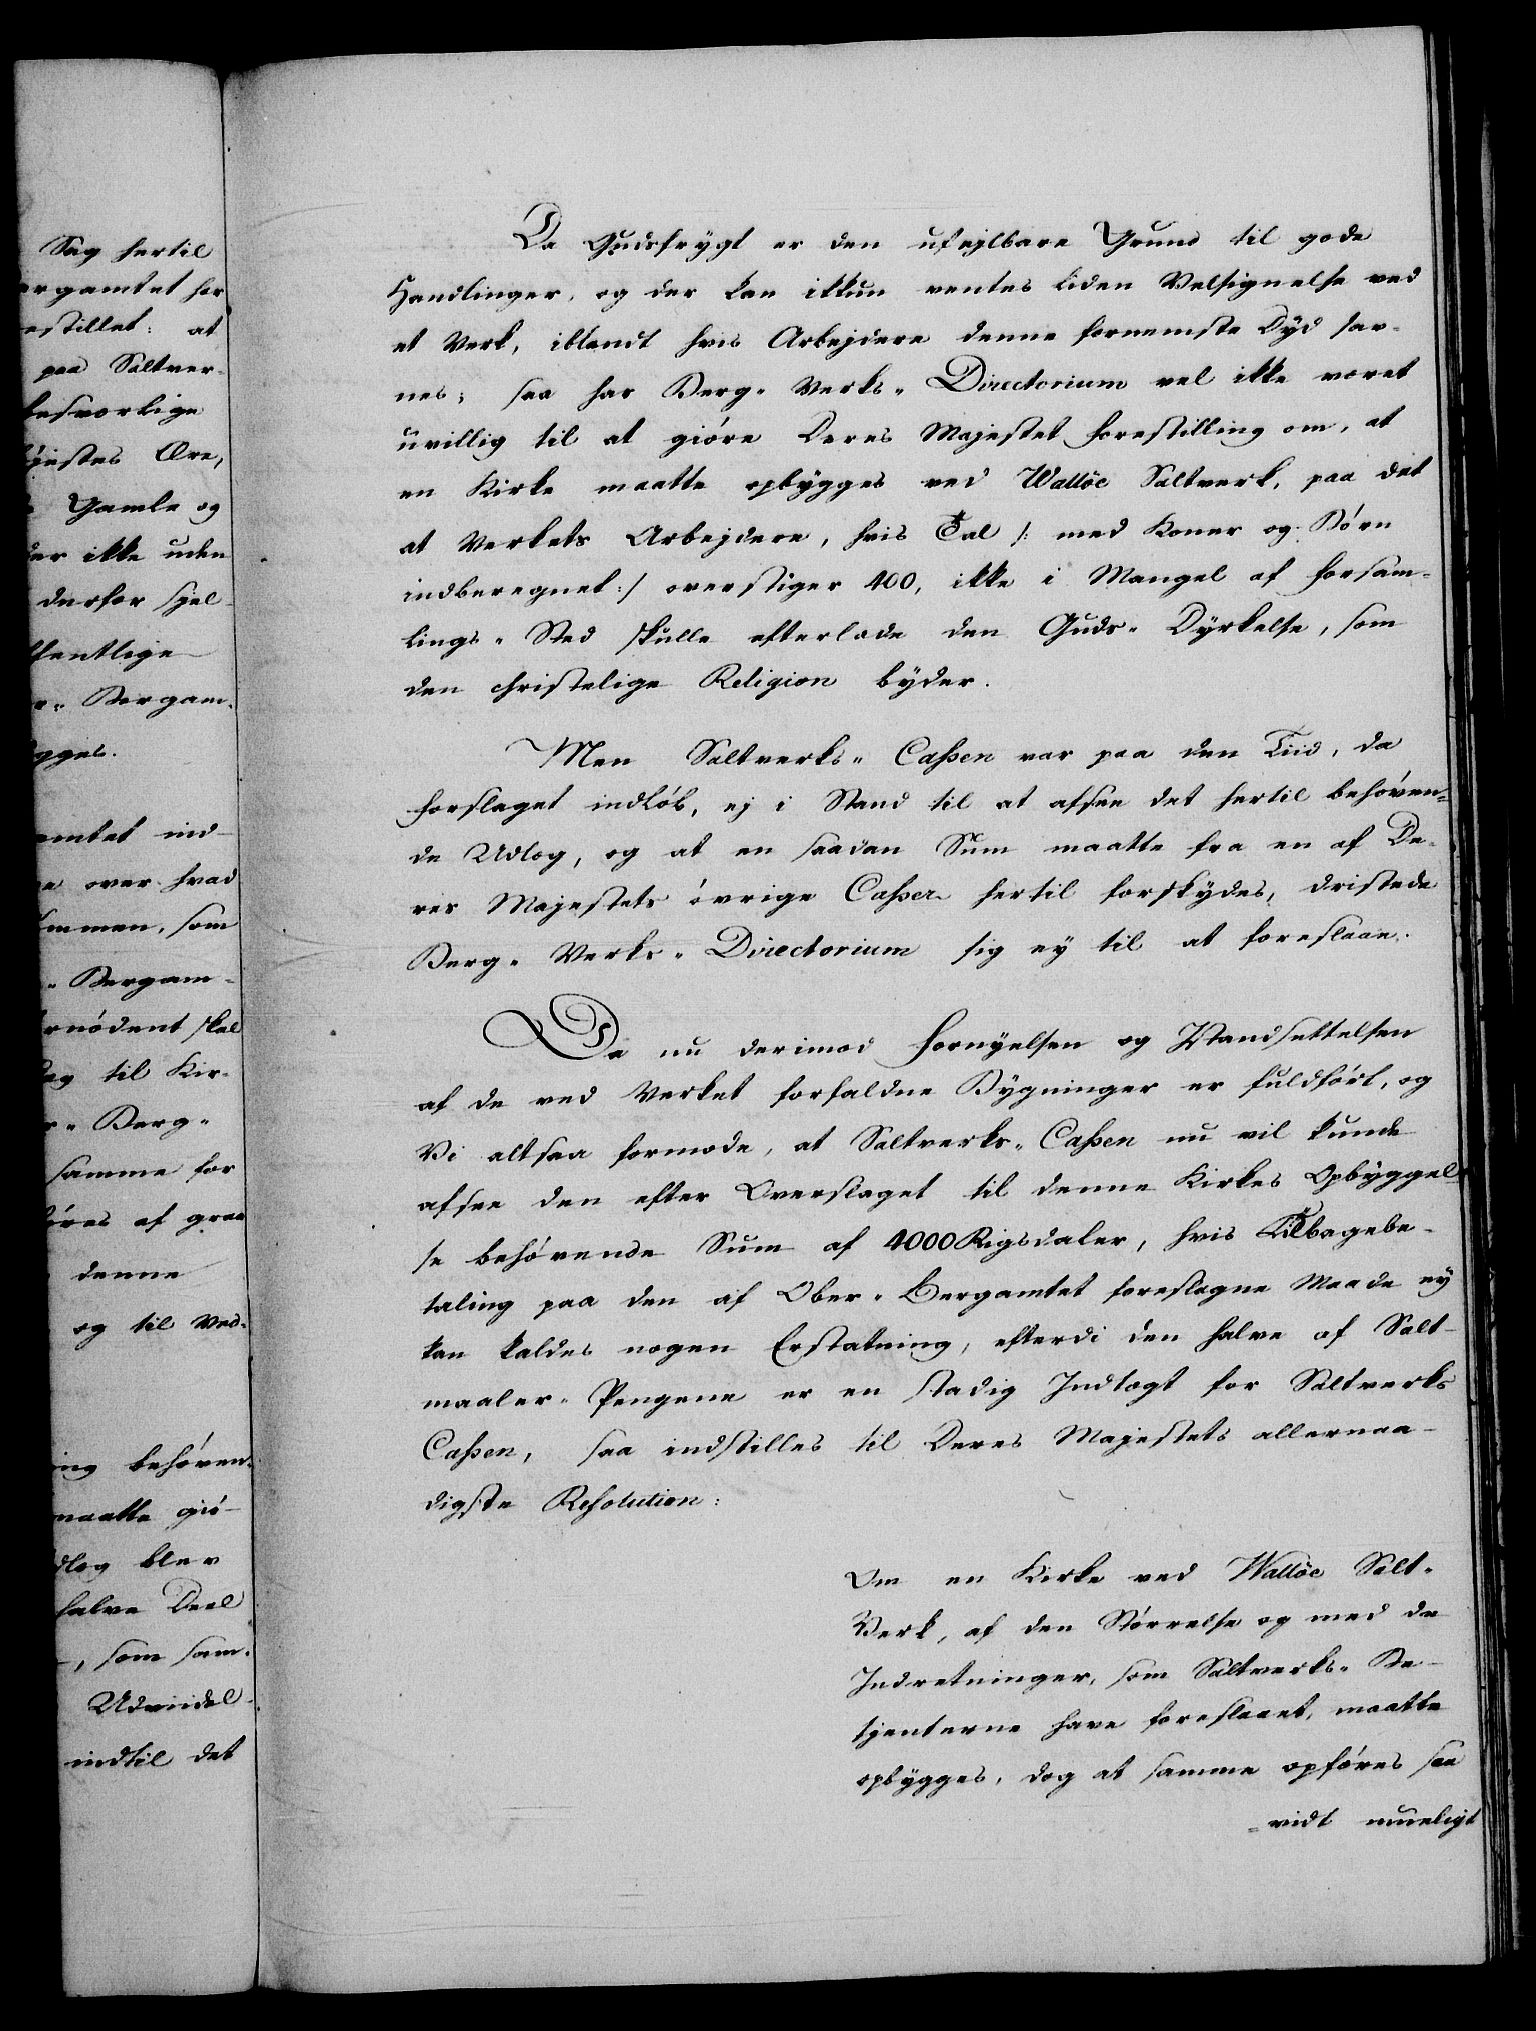 Sag hertil
ergamtet har
estillet: at
paa Saltver-
besværlige
øjestes Ære,
Gamle og
der ikke uden
derfor sjel-
ffentlige
r„ Bergam-
ygges.
amtet ind-
e over hvad
ommen, som
„ Bergam-
rnødent skal
ag til Kir-
r„ Berg„
samme for
øres af graa
denne
og til Ved-
ing behøven-
maatte giø-
dlæg blev
halve Deel
-, som sam-
Udviidel-
indtil det
Da Gudsfrygt er den ufejlbare Grund til gode
Handlinger, og der kan ikkun ventes liden Velsignelse ved
et Verk, iblandt hvis Arbejdere denne fornemste Dyd sav-
nes; saa har Berg„ Verks„ Directorium vel ikke været
uvillig til at giøre Deres Majestet Forestilling om, at
en Kirke maatte opbygges ved Walløe Saltverk, paa det
at Verkets Arbejdere, hvis Tal /: med Koner og Børn
indberegnet :/ overstiger 400, ikke i Mangel af Forsam-
lings„ Sted skulle efterlade den Guds„ Dyrkelse, som
den christelige Religion byder.
Men Saltverks„ Cassen var paa den Tiid, da
Forslaget indløb, ej i Stand til at afsee det hertil behøven-
de Udlæg, og at en saadan Sum maatte fra en af De-
res Majestets øvrige Casser hertil forskydes, dristede
Berg„ Verks„ Directorium sig ey til at foreslaae.
Da nu derimod Fornyelsen og Istandsettelsen
af de ved Verket forfaldne Bygninger er fuldført, og
Vi altsaa formode, at Saltverks„ Cassen nu vil kunde
afsee den efter Overslaget til denne Kirkes Opbyggel-
se behøvende Sum af 4000 Rigsdaler, hvis Tilbagebe-
taling paa den af Ober„ Bergamtet foreslagne Maade ey
kan kaldes nogen Erstatning, efterdi den halve af Salt-
maaler„ Pengene er en stadig Indtægt for Saltverks
Cassen, saa indstilles til Deres Majestets allernaa-
digste Resolution:
Om en Kirke ved Walløe Salt„
Verk, af den Størrelse og med de
Indretninger, som Saltverks„ Be-
tjenterne have foreslaaet, maatte
opbygges, dog at samme opføres saa
= vidt mueligt